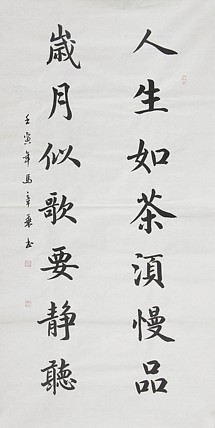 人生如茶須慢品
歲月似歌要静聽
壬寅年馬